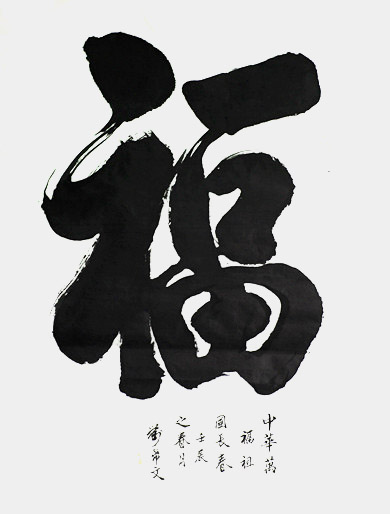 福
中華萬
福祖
國長春
壬辰
之春月
文